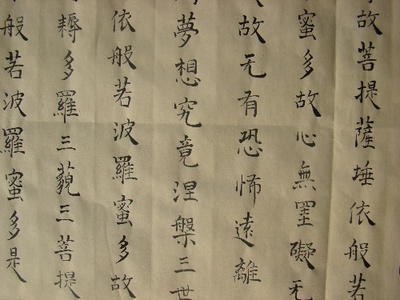 故菩提薩埵依般若
蜜多故心無罣礙无
故无有恐怖遠離
夢想究竟涅槃三世
依般若波羅蜜多故
耨多羅三藐三菩提
般若波羅蜜多是